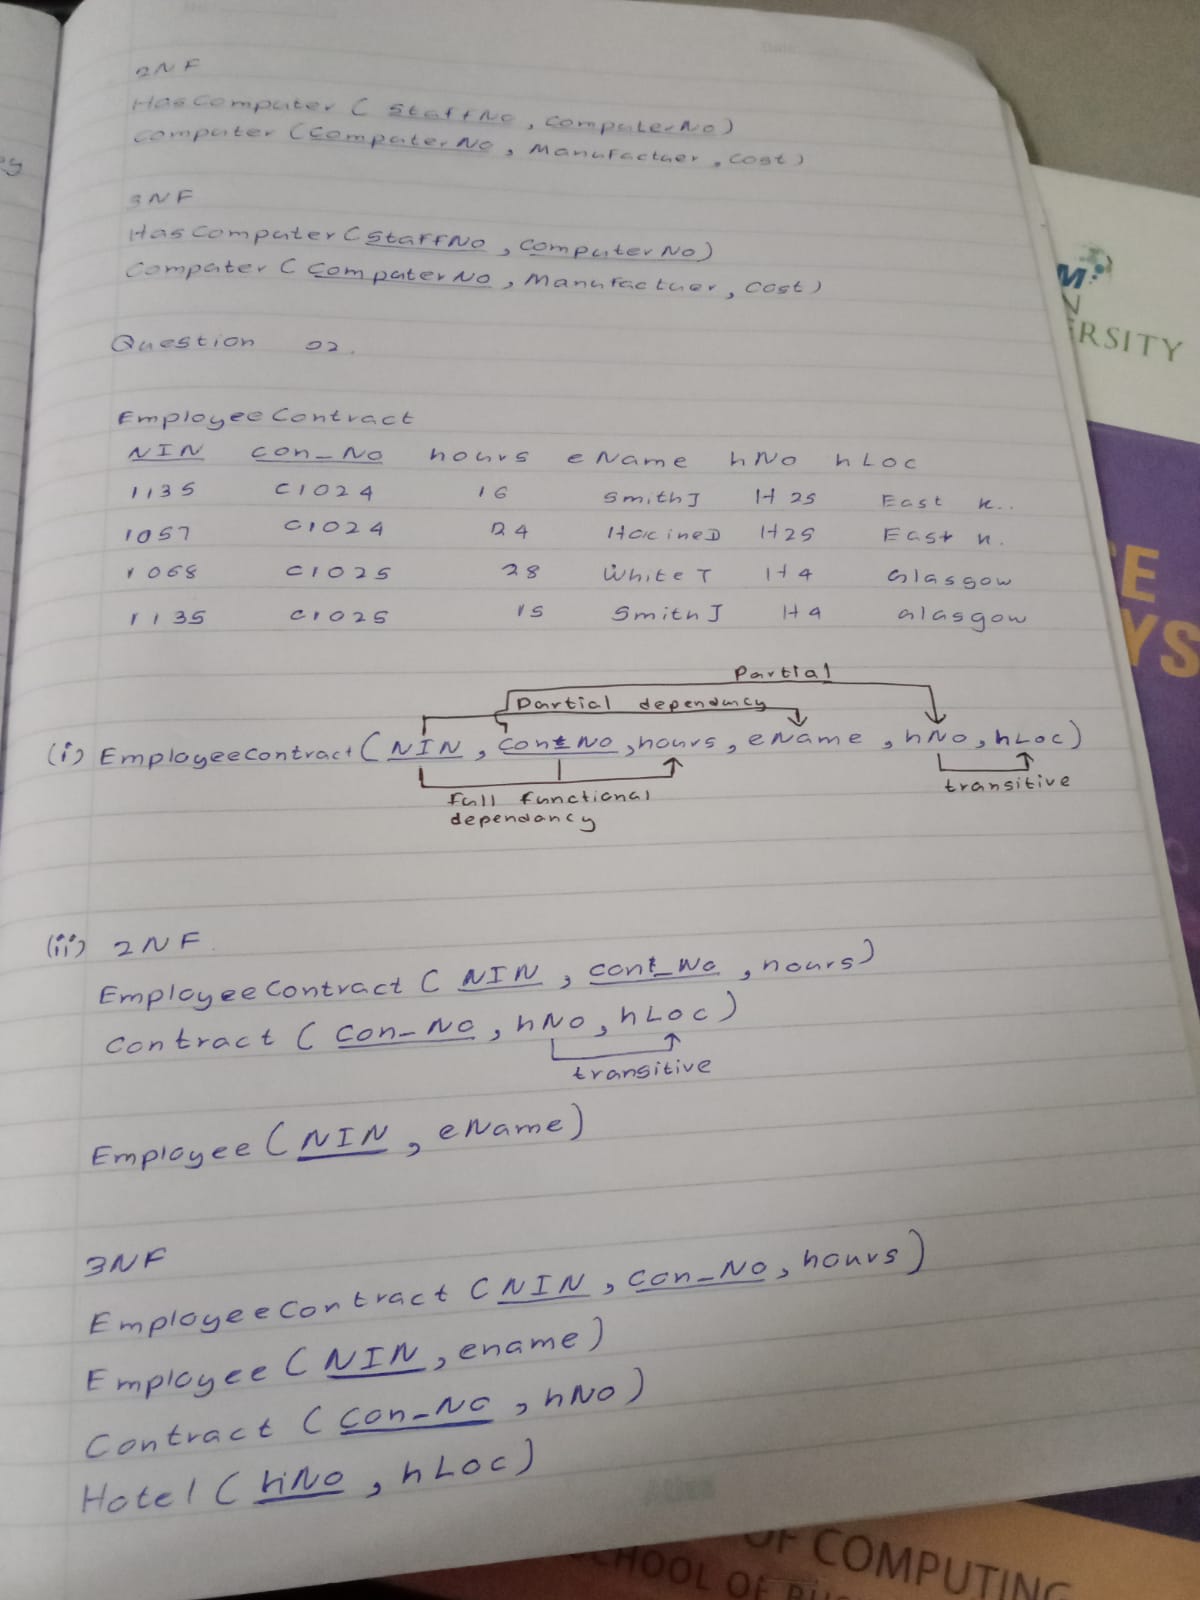 2NF
HasComputer ( StaffNo , computerNo)
computer (ComputerNo , Manufactuer , cost)
3NF
HasComputer (StaffNo , ComputerNo)
Computer ( ComputerNo , Manufactuer , cost)
Question 02.
EmployeeContract
NIN con_No hours eName hNo hLoc
1135 C1024 16 SmithJ H25 East K..
1057 C1024 24 HocineD H25 East K.
1068 C1025 28 WhiteT H4 Glasgow
1135 C1025 15 SmithJ H4 Glasgow
Partial
Partial dependancy
(i) EmployeeContract ( NIN , contNo , hours , eName , hNo , hLoc)
full functional dependancy
transitive
(ii) 2NF
EmployeeContract ( NIN , cont_No , hours)
Contract ( Con-No , hNo , hLoc)
transitive
Employee (NIN , eName)
3NF
EmployeeContract (NIN , Con-No , hours)
Employee (NIN , ename)
Contract (Con-No , hNo)
Hotel ( hNo , hLoc)
M
N
ERSITY
E
YS
OF COMPUTING
SCHOOL OF BUS